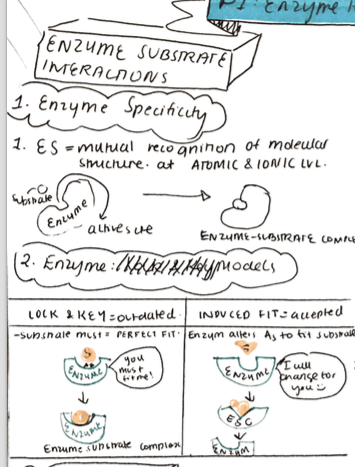 P1: Enzyme
ENZYME SUBSTRATE
INTERACTIONS
1. Enzyme Specificity
1. ES = mutual recognition of molecular
structure. at ATOMIC & IONIC LVL.
Substrate
Enzyme
active site
ENZYME-SUBSTRATE COMPLE
2. Enzyme: Models
LOCK & KEY = outdated.
INDUCED FIT = accepted
-substrate must = PERFECT FIT.
Enzym alters As to fit substrate
S
ENZYME
you
must
fit me!
ENZYME
Enzyme substrate complex
ENZYME
I will
change for
you
ESC
ENZYM